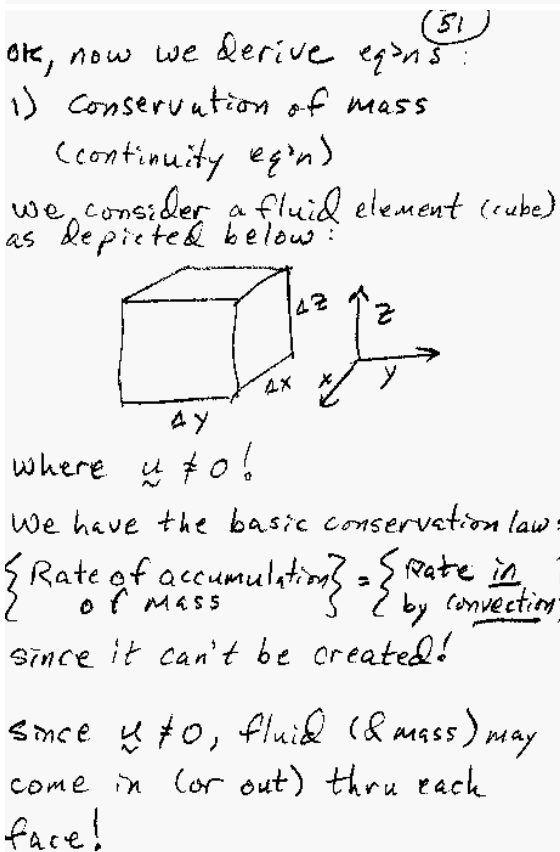 51
OK, now we derive eq'ns:
1) Conservation of mass
(continuity eq'n)
We consider a fluid element (cube)
as depicted below:
Δz
z
Δx
x
y
Δy
where u ≠ 0!
We have the basic conservation law:
{Rate of accumulation of mass} = {Rate in by convection}
since it can't be created!
Since u ≠ 0, fluid (& mass) may
come in (or out) thru each
face!